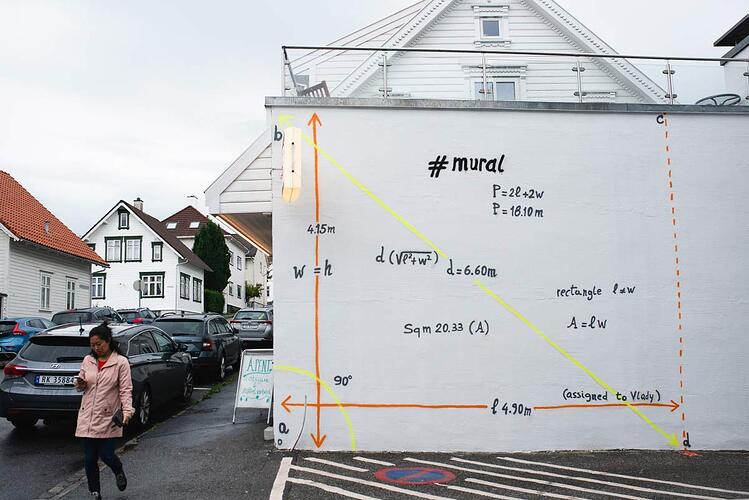 c
b
#mural
P=2ℓ+2w
P=18.10m
4.15m
d(√ℓ²+w²) d=6.60m
w=h
rectangle ℓ≠w
Sqm 20.33 (A)
A=ℓw
A.PENT
90°
RK 3588
(assigned to Vlady)
ℓ 4.90m
a
d